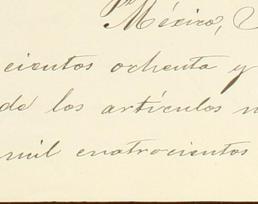 México,
cientos ochenta y
de los artículos
mil cuatrocientos